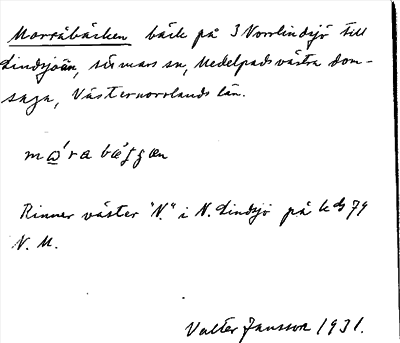 Morråbäcken bäck på 3 Norrlindsjö till
Lindsjöån, Stivnars sn, Medelpads västra dom-
saga, Västernorrlands län.
Rinner väster "N." i N. Lindsjö på kbl 79
N. M.
Valter Jansson 1931.